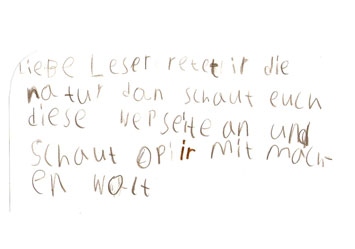 Liebe Leser retet ir die
natur dan schaut euch
diese webseite an und
schaut op iir mit mach-
en wolt